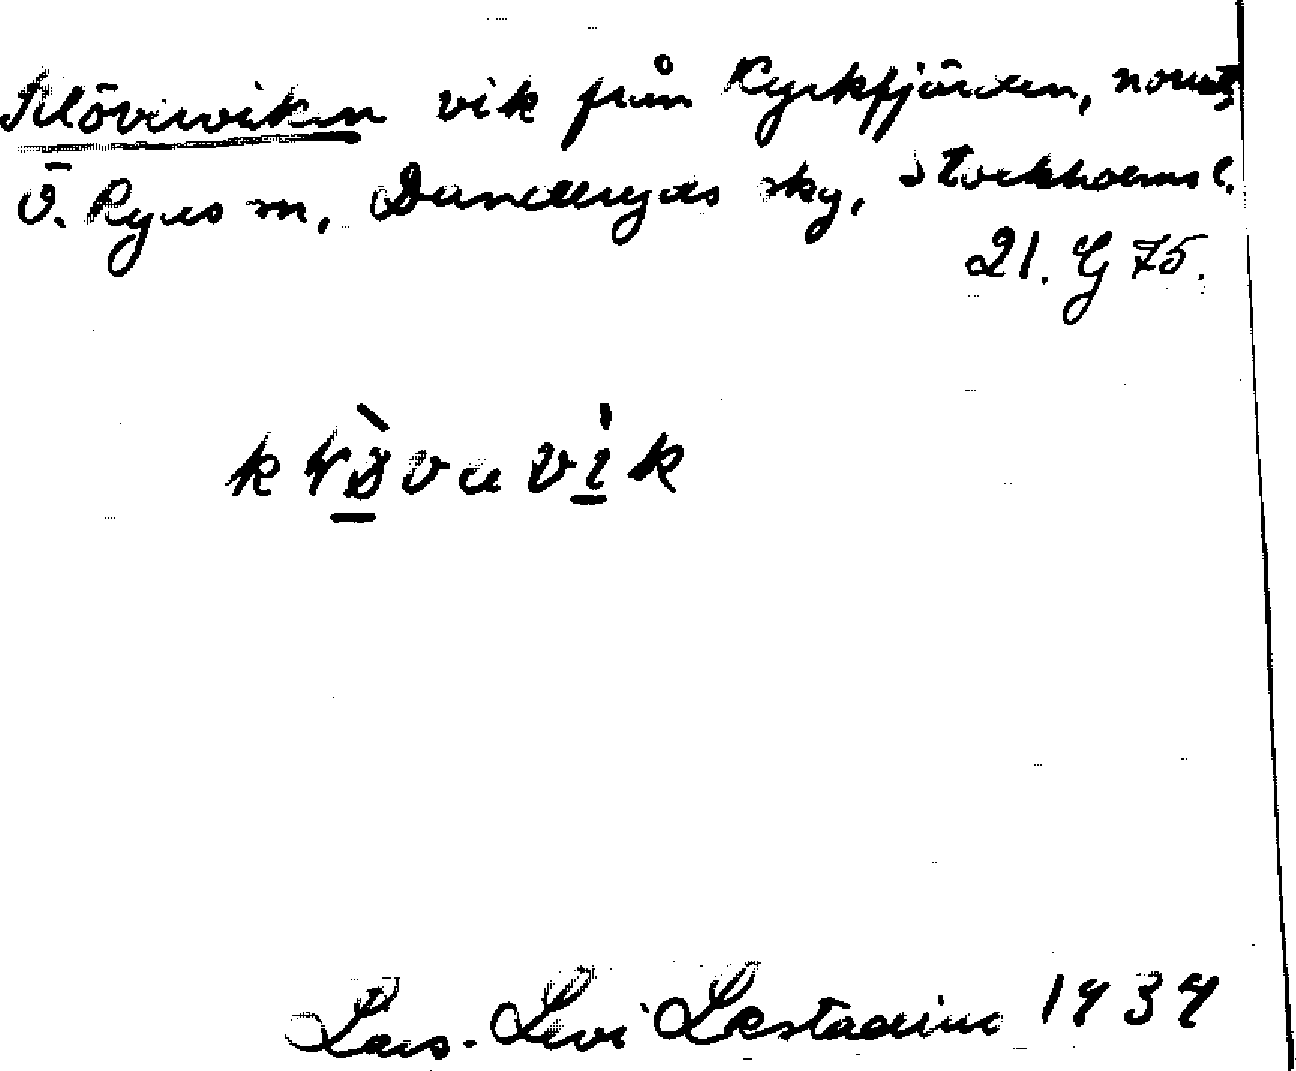 Klöverviken vik från Kyrkfjärden, norrut,
Ö. Ryds sn, Danderyds skg, Stockholms l.
21. G 75.
klö̀vavík
Lars-Levi Læstadius 1934